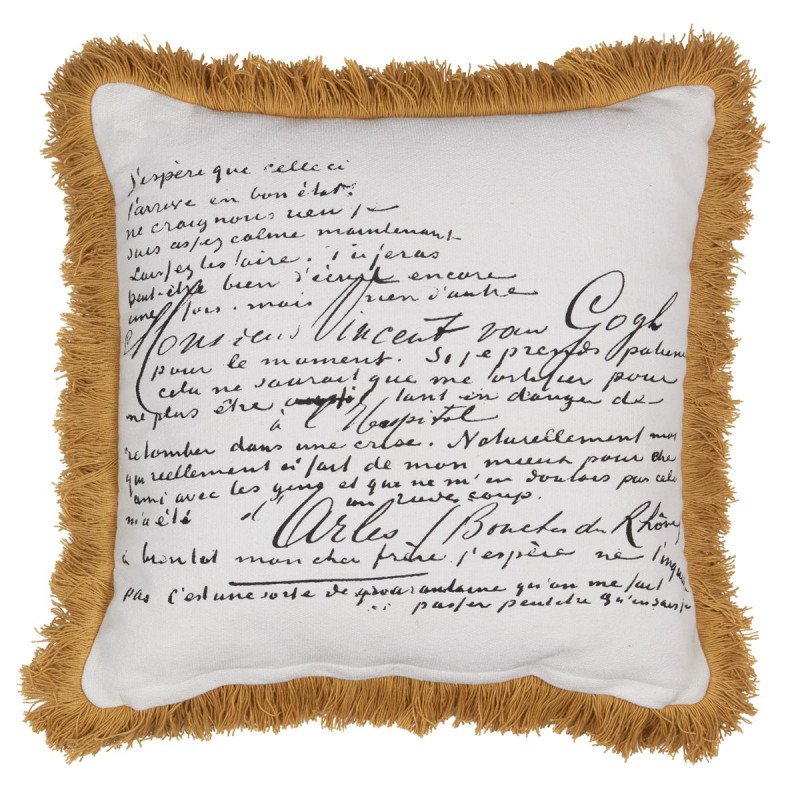 J'espère que celle ci
t'arrive en bon état.
ne craignons rien je
suis assez calme maintenant
Laissez les faire. Tu feras
peut-être bien d'écrire encore
une fois. mais rien d'autre
Monsieur Vincent van Gogh
pour le moment. Si je prends patience
cela ne saurait que me fortifier pour
ne plus être tant en danger de
à l'Hospital
retomber dans une crise. Naturellement moi
qui reellement ai fait de mon mieux pour être
ami avec les gens et que ne m'en doutais pas cela
m'a été un rude coup.
d'Arles (Bouches du Rhône)
à bientot mon cher frère j'espère ne
pas c'est une sorte de quarantaine qu'on me fait
passer peutetre